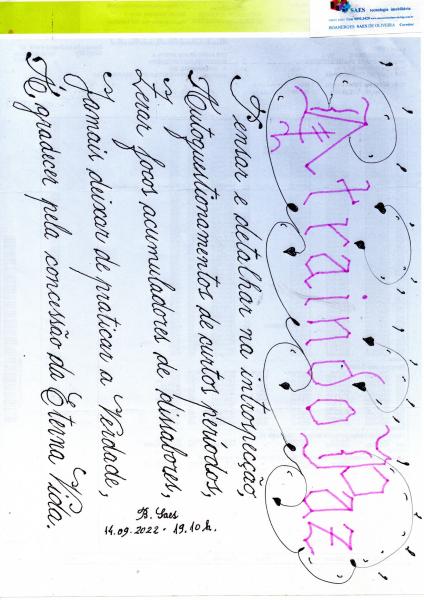 SAES tecnologia imobiliária
BOANERGES SAES DE OLIVEIRA Corretor
Atraindo Paz
Pensar e detalhar na introspecção,
Autoquestionamentos de curtos períodos,
Zerar focos acumuladores de dissabores,
Jamais deixar de praticar a Verdade,
Agradecer pela concessão da Eterna Vida.
B. Saes
14.09.2022 - 19.10h.